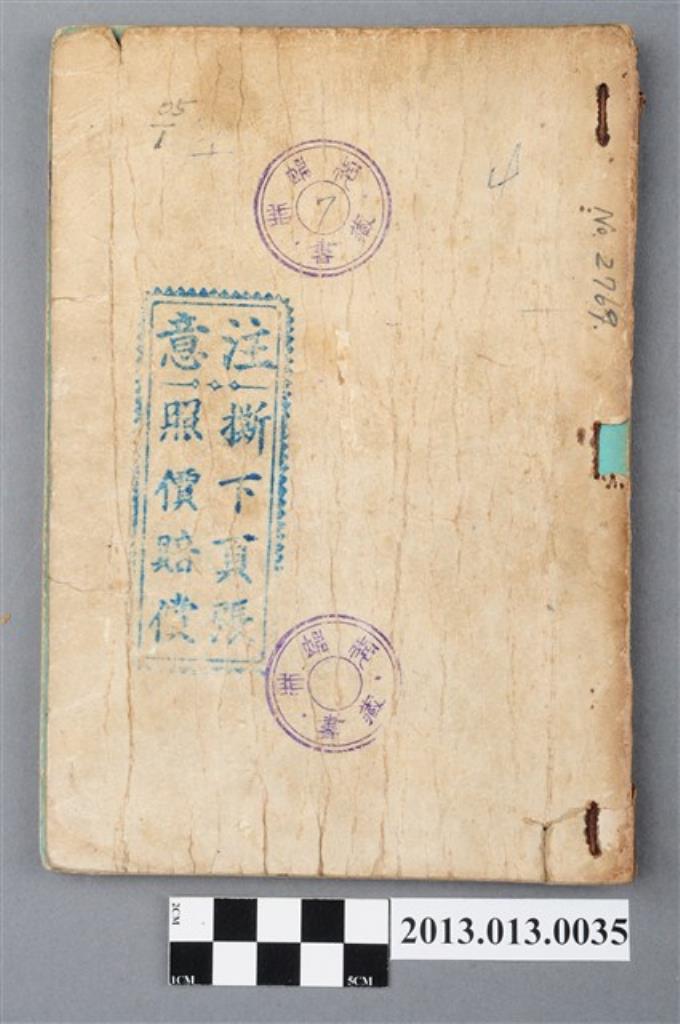 05
1
7
No. 2769.
注意
撕下頁張
照價賠償
書藏
書藏
2CM
1CM
5CM
2013.013.0035